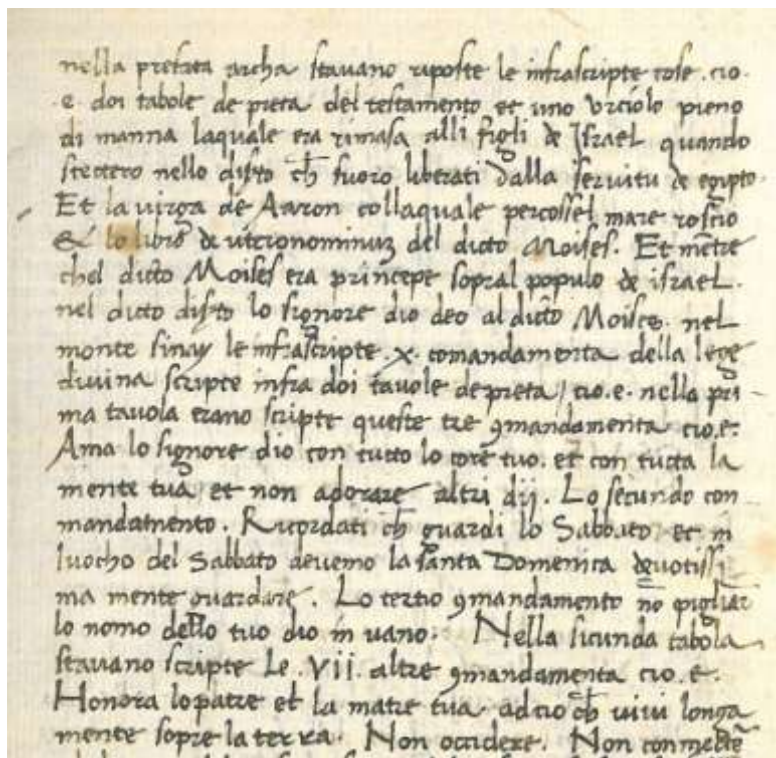 nella prefata archa stavano riposte le infrascripte cose .cio.
.e. doi tabole de preta del testamento et uno vrciolo pieno
di manna laquale era rimasa alli figli de Israel quando
stectero nello disto ch fuoro liberati dalla servitu de egipto.
Et la virga de Aaron collaquale percossel mare roscio
& lo libro de uteronominuz del dicto Moises. Et mētre
chel dicto Moises era principe sopral populo de israel.
nel dicto disto lo signore dio deo al dicto Moises. nel
monte sinay le infrascripte .x. comandamenta della lege
divina scripte infra doi tavole de preta / cio.e. nella pri
ma tavola erano scripte queste tre 9mandamenta cio.e.
Ama lo signore dio con tucto lo core tuo. et con tucta la
mente tua et non adorare altri dij. Lo secundo con
mandamento. Ricordati ch guardi lo Sabbato et in
luocho del Sabbato devemo la santa Domenica devotissi
ma mente guardare. Lo tertio 9mandamento nō pigliar
lo nomo dello tuo dio in vano. Nella secunda tabola
stavano scripte Le .VII. altre 9mandamenta cio.e.
Honora lo patre et la matre tua. adcio ch vivi longa
mente sopre la terra. Non occidere. Non conmecte